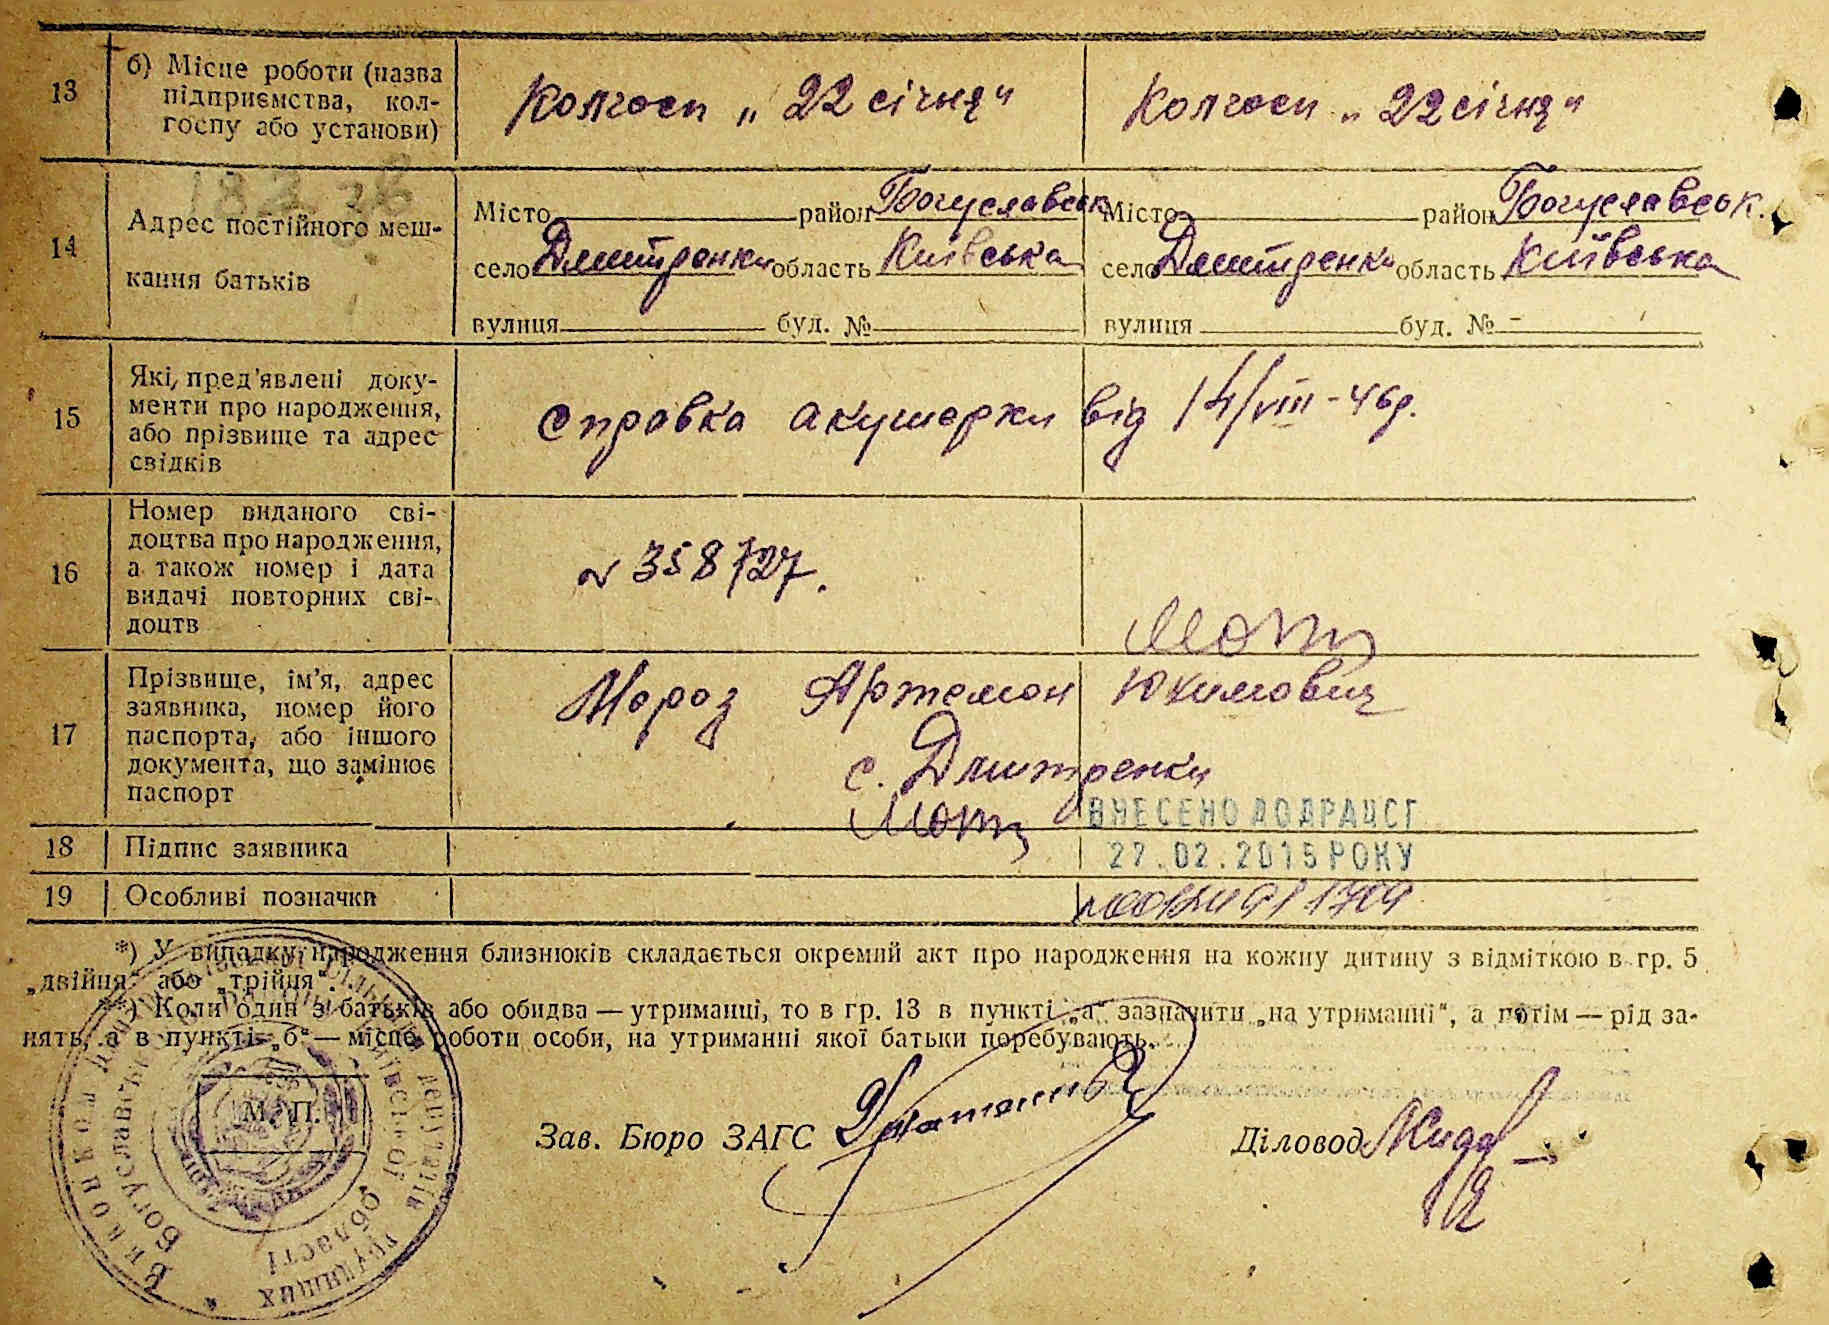 13 б) Місце роботи (назва підприємства, колгоспу або установи)
Колгосп „22 січня“ Колгосп „22 січня“
14 Адрес постійного меш-
кання батьків
Місто район Богуславськ Місто район Богуславськ.
село Дмитренки область Київська село Дмитренки область Київська
вулиця буд. № вулиця буд. № -
15 Які, пред'явлені доку-
менти про народження,
або прізвище та адрес
свідків
справка акушерки від 14/VIII-46р.
16 Номер виданого сві-
доцтва про народження,
а також номер і дата
видачі повторних сві-
доцтв
№ 358727.
17 Прізвище, ім'я, адрес
заявника, номер його
паспорта, або іншого
документа, що замінює
паспорт
Мороз Артемон Юхимович
с. Дмитренки
ВНЕСЕНО ДО ДРАЦСГ
18 Підпис заявника
27.02.2015 РОКУ
19 Особливі позначки
*) У випадку народження близнюків складається окремий акт про народження на кожну дитину з відміткою в гр. 5
„двійня“ або „трійня“.
**) Коли один з батьків або обидва — утриманці, то в гр. 13 в пункті „а“ зазначити „на утриманні“, а потім — рід за-
нять, а в пункті „б“ — місце роботи особи, на утриманні якої батьки перебувають.
М. П.
Зав. Бюро ЗАГС
Діловод